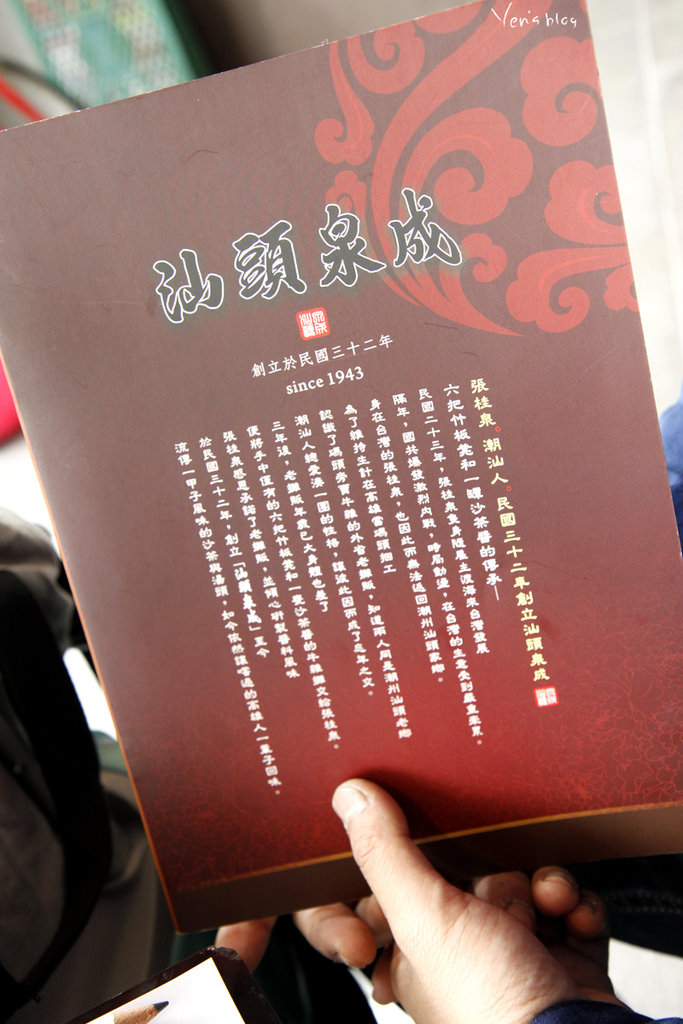 Yen's blog
汕頭泉成
創立於民國三十二年
since 1943
張桂泉。潮汕人。民國三十二年創立汕頭泉成
六把竹板凳和一罈沙茶醬的傳承—
民國二十三年,張桂泉隻身隨展生渡海來台灣發展
隔年,國共爆發激烈內戰,時局動盪,在台灣的生意受到嚴重影響。
身在台灣的張桂泉,也因此而無法返回潮州汕頭家鄉。
為了維持生計在高雄當碼頭細工
認識了碼頭旁賣牛雜的外省老攤販,知道兩人同是潮州汕頭老鄉
潮汕人總愛湊一團的性格,讓彼此因而成了忘年之交。
三年後,老攤販年歲已大身體也差了
便將手中僅有的六把竹板凳和一甕沙茶醬的牛雜攤交給張桂泉。
張桂泉感恩承諾了老攤販,並傾心研製醬料風味
於民國三十二年,創立「汕頭泉成」至今
流傳一甲子風味的沙茶與湯頭,如今依然讓嚐過的高雄人一輩子回味。